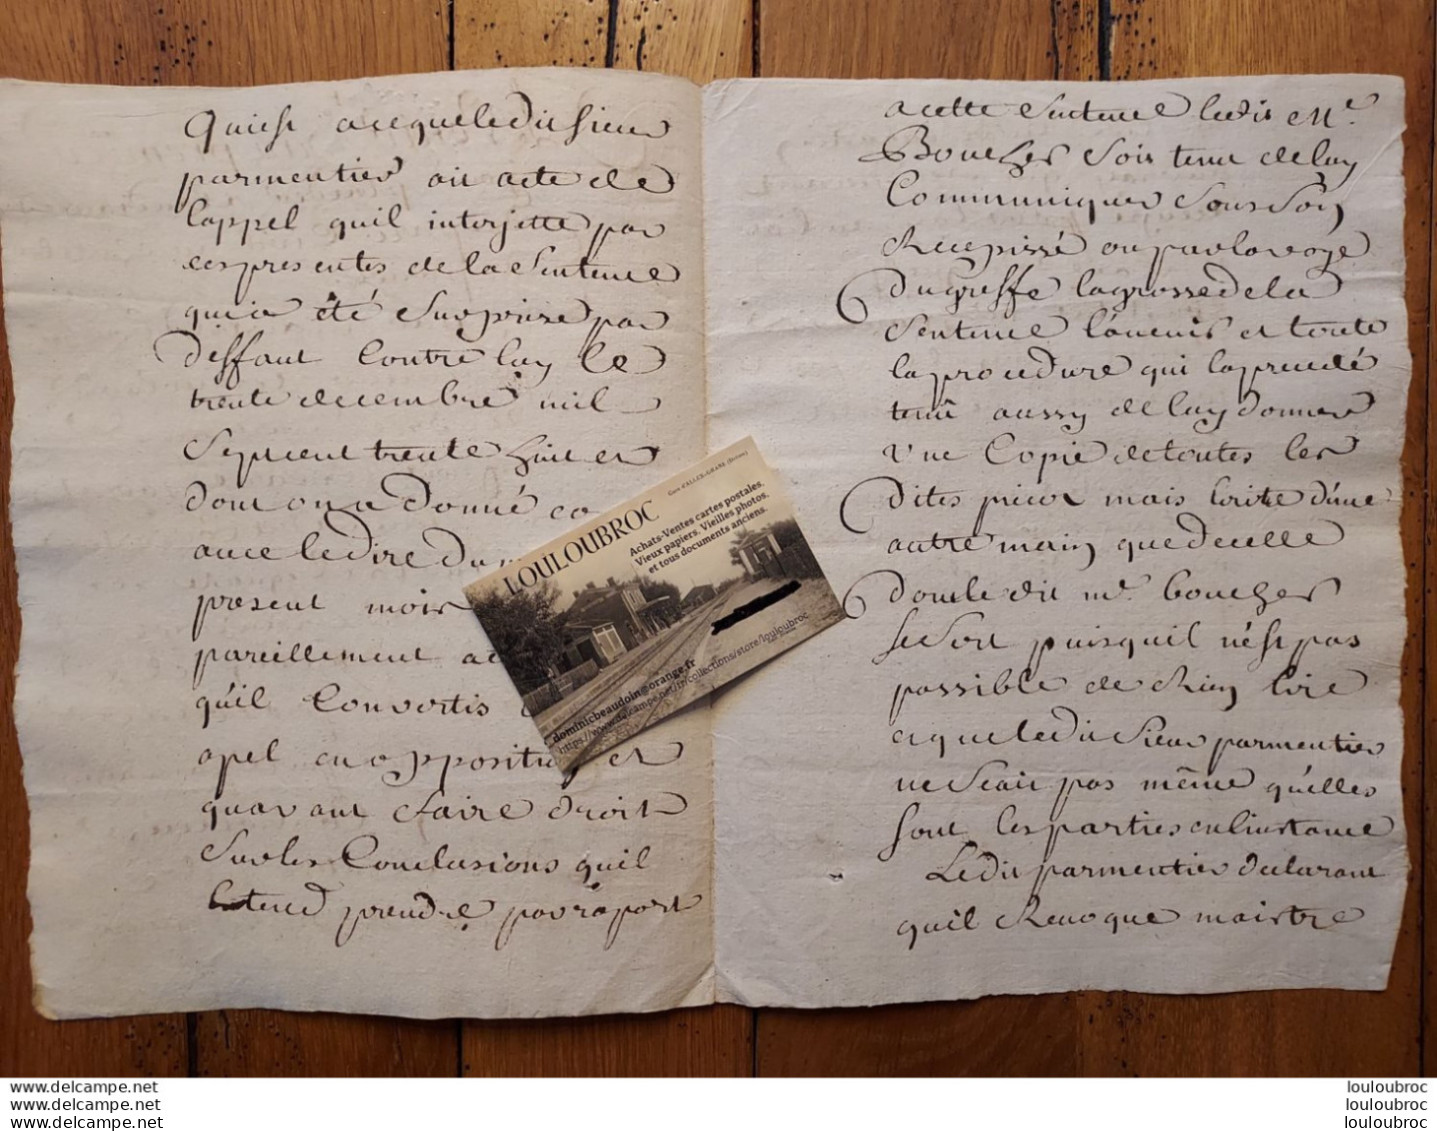 Quiest acequeledit sieur
parmentier ait acte de
lappel quil interjette par
ces presentes de la sentence
quia été surprise par
deffaut contre luy le
trente decembre mil
sept cent trente huit et
dont on a donné co
avec ledire du
present mois
pareillement ac
qu'il convertis
apel en opposition et
quavant faire droit
sur les conclusions quil
entend prendre par raport
acette sentence ledit Me.
Boucher soit tenu de luy
communiquer sous son
recepissé ou par la voye
du greffe la grosse de la
sentence l'avenir et toute
la procedure qui la precedé
tenu aussy de luy donner
une copie de toutes les
dites pieces mais écrite d'une
autre main que de celle
dont le dit me. boucher
se sert puisquil n'est pas
possible de rien lire
et que ledit sieur parmentier
ne scait pas même qu'elles
sont les parties en linstance
Ledit parmentier declarant
quil revoque maistre
LOULOUBROC
Gare d'ALLEX-GRANE (Drôme)
Achats-Ventes cartes postales.
Vieux papiers. Vieilles photos.
et tous documents anciens.
dominicbeaudoin@orange.fr
https://www.delcampe.net/fr/collections/store/louloubroc
www.delcampe.net
www.delcampe.net
www.delcampe.net
louloubroc
louloubroc
louloubroc